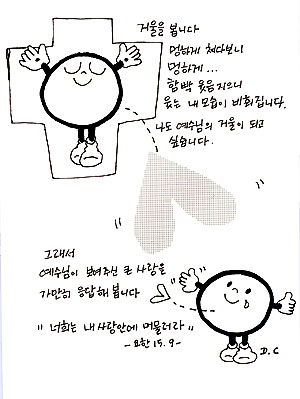 거울을 봅니다
멍하게 쳐다보니
멍하게...
함박 웃음지으니
웃는 내 모습이 비춰집니다.
나도 예수님의 거울이 되고
싶습니다.
그래서
예수님이 보여주신 큰 사랑을
가만히 응답해 봅니다
"너희는 내 사랑안에 머물러라"
-요한 15.9-
D.C